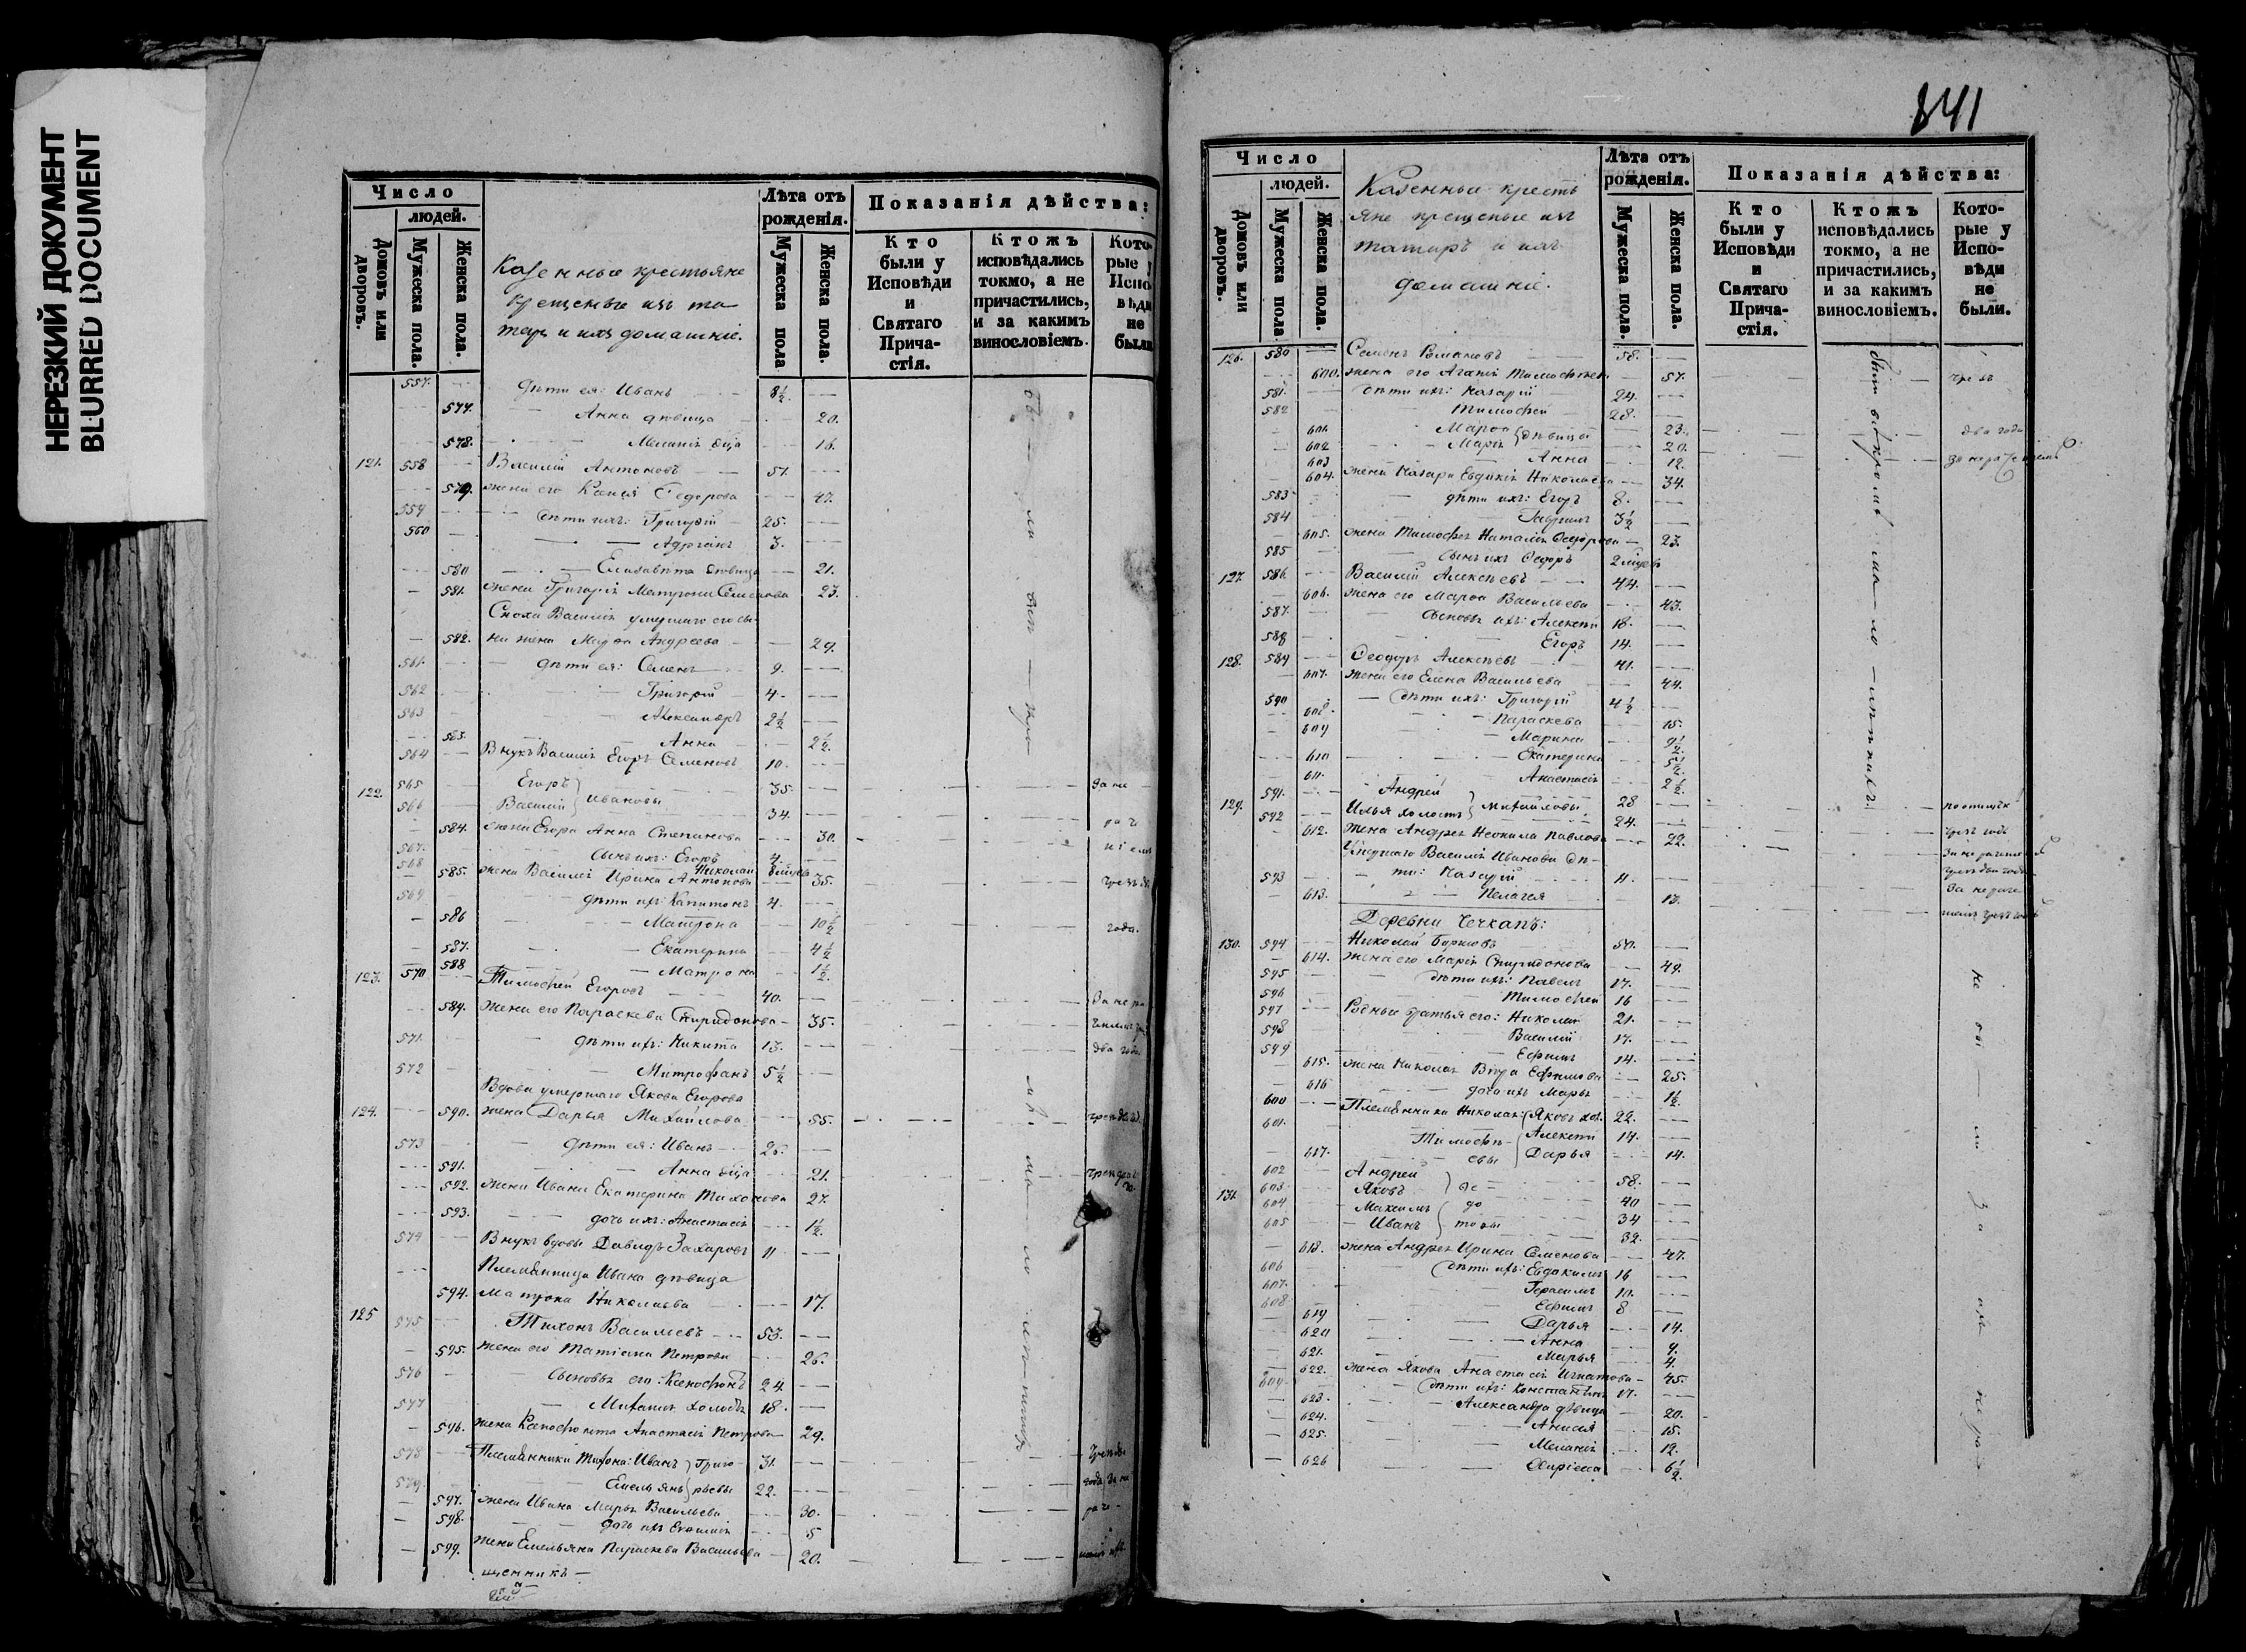 НЕРЕЗКИЙ ДОКУМЕНТ
BLURRED DOCUMENT
Число
людей.
Домовъ или дворовъ.
Мужеска пола.
Женска пола.
Казенные крестьяне
крещеные изъ та
таръ и ихъ домашніе.
Лѣта отъ рожденія.
Мужеска пола
Женска пола.
Показанія дѣйства:
Кто были у Исповѣди и Святаго Прича-стія.
Ктожъ исповѣдались токмо, а не причастились, и за какимъ винословіемъ.
Кото-рые у Испо-вѣди не были
557. дѣти ея: Иванъ 8½.
577. Анна дѣвица 20.
578. Меланія двца 16.
121. 558 Василій Антоновъ 51.
579. жена его Ксенія Федорова 47.
559 дѣти ихъ: Григорій 25.
560 Адріанъ 3.
580 Елизавѣта дѣвица 21.
581. жена Григорія Матрона Семенова 23.
Сноха Василія умершаго его сы-
582. на жена Марѳа Андреева 29.
561. дѣти ея: Семенъ 9.
562 Григорій 4.
563 Александръ 2½
583. Анна 2½.
564 Внукъ Василія Егоръ Семеновъ 10.
122. 565 Егоръ 35.
566 Василій } Ивановы 34.
584. жена Егора Анна Степанова 30.
567. сынъ ихъ: Егоръ 4.
568 Николай
585. жена Василія Ирина Антонова 35.
569 дѣти ихъ: Капитонъ 4.
586 Матрона 10½
587. Екатерина 4½
588 Матрона 1½.
123. 570 Тимофей Егоровъ 40.
589. жена его Параскева Спиридонова 35.
571. дѣти ихъ: Никита 13.
572 Митрофанъ 5½
Вдова умершаго Якова Егорова
124. 590. жена Дарья Михайлова 55.
573 дѣти ея: Иванъ 26.
591. Анна двца 21.
592. жена Ивана Екатерина Тихонова 27.
593. дочь ихъ: Анастасія 1½.
574 Внукъ вдовы Давидъ Захаровъ 11
Племянница Ивана дѣвица
594. Матрона Николаева 17.
125 575 Тихонъ Васильевъ 53.
595. жена его Татіана Петрова 26.
576 сыновья его: Ксенофонтъ 24.
577 Михаилъ холостъ 18.
596. жена Ксенофонта Анастасія Петрова 29.
578 Племянники Тихона: Иванъ } Григо- 31.
579. Емельянъ } рьевы 22.
597. жена Ивана Марья Васильева 30.
598. дочь ихъ 5
599. жена Емельяна Параскева Васильева 20.
щенникъ
841
Число
людей.
Домовъ или дворовъ.
Мужеска пола
Женска пола.
Казенные кресть
яне крещеные изъ
татаръ и ихъ
домашніе.
Лѣта отъ рожденія.
Мужеска пола.
Женска пола.
Показанія дѣйства:
Кто были у Исповѣди и Святаго Прича-стія.
Ктожъ исповѣдались токмо, а не причастились, и за какимъ винословіемъ.
Кото-рые у Испо-вѣди не были.
126. 580 Семенъ Романовъ 58.
600. жена его Агапія Тимофеева 57.
581. дѣти ихъ: Назарій 24.
582 Тимофей 28.
601. Марѳа } дѣвицы 23.
602 Марія 20.
603 Анна 12.
604. жена Назара Евдокія Николаева 34.
583 дѣти ихъ: Егоръ 8.
584 Гаврилъ 3½
605. жена Тимофея Наталія Ѳедорова 23.
585 сынъ ихъ Ѳедоръ
127. 586. Василій Алексѣевъ 44.
606. жена его Марѳа Васильева 43.
587. сыновья ихъ: Алексѣй 18.
588 Егоръ 14.
128. 589 Ѳеодоръ Алексѣевъ 41.
607. жена его Елена Васильева 44.
590 дѣти ихъ: Григорій 4½
608. Параскева 15.
609 Марина 9½.
610 Екатерина 5½.
611. Анастасія 2½.
129. 591. Андрей 28
592 Илья холостъ } Михайловы 24.
612. жена Андрея Неонила Павлова 22.
Умершаго Василія Иванова дѣ-
593 ти: Назарій 11.
613. Пелагея 13.
Деревни Чечкапъ:
130. 594 Николай Борисовъ 50.
614. жена его Марія Спиридонова 49.
595 дѣти ихъ: Павелъ 17.
596 Тимофей 16
597 Родные братья его: Николай 21.
598 Василій 17.
599 Ефимъ 14.
615. жена Николая Вѣра Ефимова 25.
616 дочь ихъ Марья 1½.
600 Племянники Николая: Яковъ хол. 22.
601. Тимофѣ- Алексѣй 14.
617. евы Дарья 14.
602 Андрей 58.
131. 603. Яковъ } Ѳе- 40
604 Максимъ до 34
605 Иванъ товы 32.
618. жена Андрея Ирина Семенова 47.
606 дѣти ихъ: Евдокимъ 16
607. Герасимъ 10.
608 Ефимъ 8
619 Дарья 14.
620 Анна 9.
621. Марья 4.
622. жена Якова Анастасія Игнатова 45.
609. дѣти ихъ: Константинъ 17.
623. Александра дѣвица 20.
624. Анисія 15.
625. Меланія 12.
626 6½.